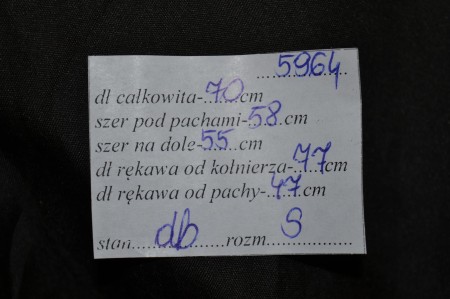 ..................5964
dł całkowita-..70..cm
szer pod pachami-..58..cm
szer na dole-..55...cm
dł rękawa od kołnierza-..77..cm
dł rękawa od pachy-..47..cm
stan.....db.....rozm....S..........